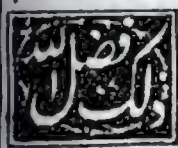 ذلك فضل الله